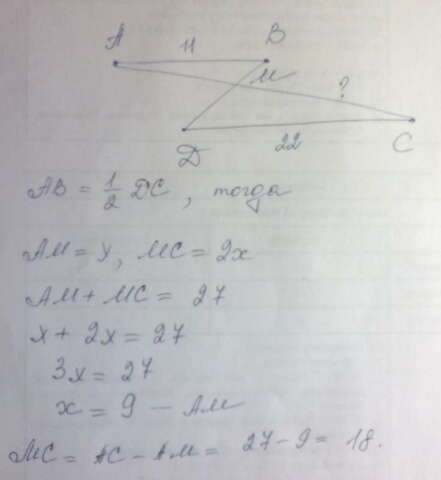 A 11 B
M ?
D 22 C
AB = 1/2 DC, тогда
AM = x, MC = 2x
AM + MC = 27
x + 2x = 27
3x = 27
x = 9 - AM
MC = AC - AM = 27 - 9 = 18.